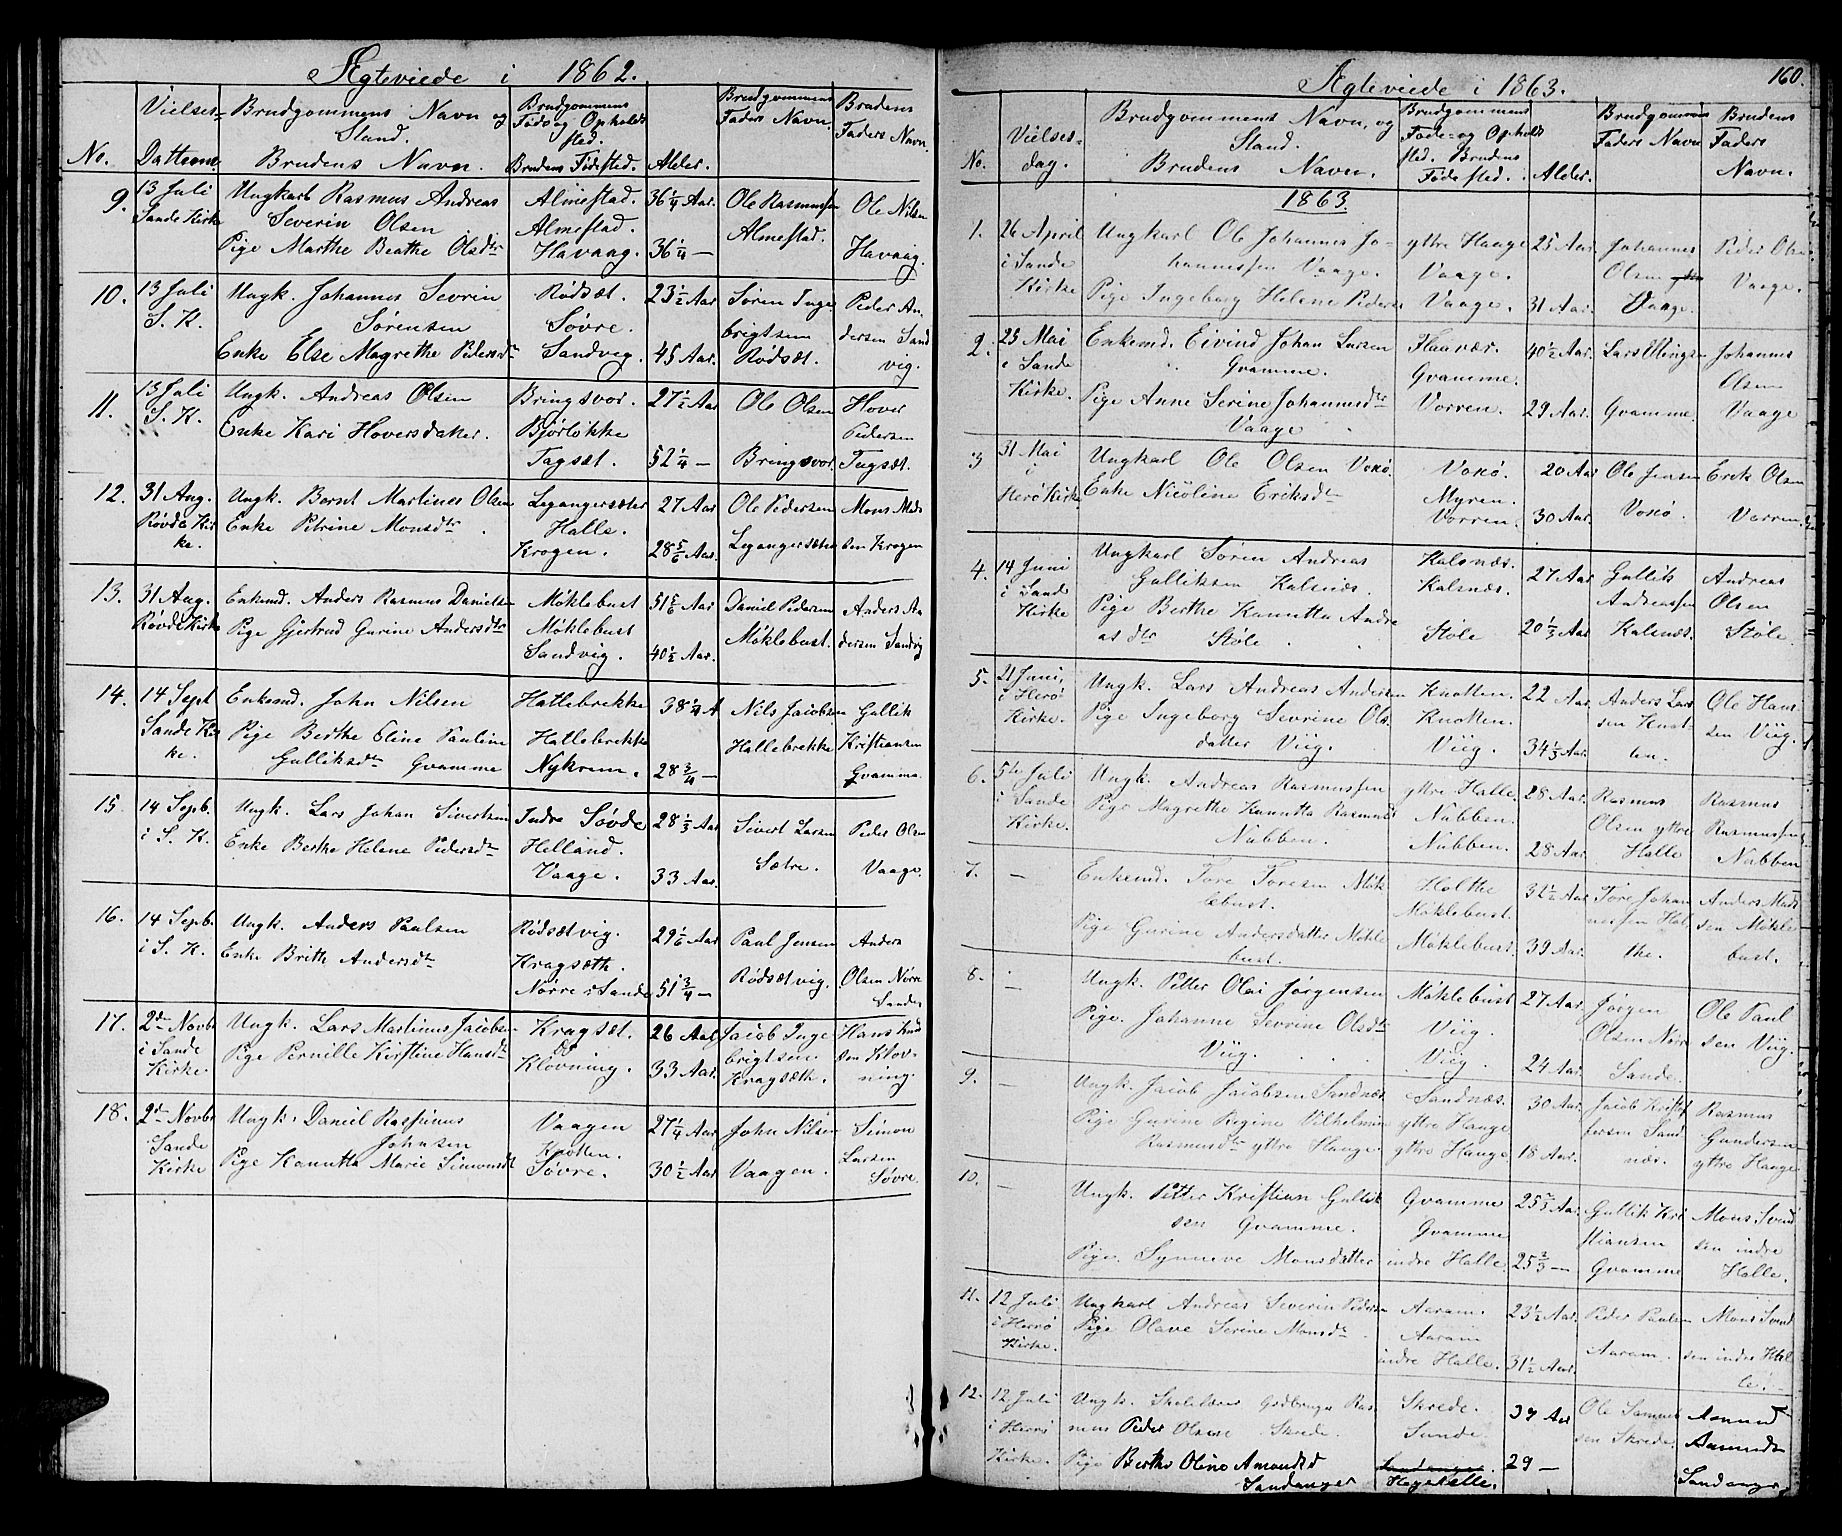 Ægteviede i 1862.
No.
Vielses-
Dattum.
Brudgommens Navn og
Stand.
Brudens Navn.
Brudgommens
Føde og Opholds
sted.
Brudens Fødested.
Alder.
Brudgommens
Faders Navn.
Brudens
Faders Navn.
9.
13 Juli
Sande Kirke
Ungkarl Rasmus Andreas
Severin Olsen
Pige Marthe Beathe Olsdtr
Almestad.
Almestad.
Havaag.
36 1/4 Aar.
36 1/4 —
Ole Rasmussen
Almestad.
Ole Nilsen
Havaag.
10.
13 Juli
S. K.
Ungk. Johannes Sevrin
Sørensen
Enke Else Magrethe Pedersdtr
Rødsæt.
Søvre.
Sandvig.
23 1/2 Aar
45 Aar.
Søren Inge
brigtsen
Rødsæt.
Peder An
dersen Sand
vig.
11.
13 Juli
S. K.
Ungk. Andreas Olsen
Enke Kari Hoversdatter.
Bringsvor.
Bjørløkke
Tagsæt.
27 1/2 Aar
52 1/4 —
Ole Olsen
Bringsvor
Hover
Pedersen
Tagsæt.
12.
31 Aug.
Røvde Kir
ke.
Ungk. Bernt Martinus Olsen
Enke Petrine Monsdtr
Legangersæter
Halle.
Krogen.
27 Aar
28 5/6 Aar.
Ole Pedersen
Legangersæter
Mons Mad
sen Krogen
13.
31 Aug.
Røvde Kirke
Enkemd. Anders Rasmus Danielsen
Pige Gjertrud Gurine Andersdtr
Møklebust
Møklebust
Sandvig.
51 5/6 Aar
40 1/2 Aar.
Daniel Pedersen
Møklebust.
Anders An
dersen Sandvig
14.
14 Sept
Sande Kir
ke.
Enkemd. John Nilsen
Pige Berthe Eline Pauline
Gulliksdtr Gvamme
Hallebrekke
Hallebrekke
Nykrem.
38 1/4 A
28 3/4 —
Nils Jacobsen
Hallebrekke
Gullik
Kristiansen
Gvamme.
15.
14 Septb.
i S. K.
Ungk. Lars Johan Sivertsen
Enke Berthe Helene Pedersdtr
Indre Søvde
Helland.
Vaage.
28 1/3 Aar
33 Aar.
Sivert Larsen
Sætre.
Peder Olsen
Vaage.
16.
14 Septb.
i S. K.
Ungk. Anders Paulsen
Enke Brith Andersdtr
Rødsætvig.
Kragsæth.
Nørre i Sande
29 1/6 Aar
51 3/4 —
Paul Jensen
Rødsætvig.
Anders
Olsen Nørre
Sande.
17.
2den Novbr
i Sande
Kirke.
Ungk. Lars Martinus Jacobsen
Pige Pernille Kirstine Hansdtr
Kragsæt.
do
Kløvning.
26 Aar
33 Aar.
Jacob Inge
brigtsen
Kragsæth.
Hans Knud
sen Kløv-
ning.
18.
2den Novbr
Sande
Kirke
Ungk. Daniel Rasmus
Johnsen
Pige Kanutta Marie Simonsdtr
Vaagen
Knotten.
Søvre.
27 1/4 Aar
30 1/2 Aar
John Nilsen
Vaagen.
Simon
Larsen
Søvre.
160.
Ægteviede i 1863.
No.
Vielses-
dag.
Brudgommens Navn, og
Stand.
Brudens Navn.
Brudgommens
Føde- og Opholds
sted. Brudens
Fødested.
Alder.
Brudgommens
Faders Navn
Brudens
Faders
Navn.
1863.
1.
26 April
i Sande
Kirke
Ungkarl Ole Johannes Jo-
hannessen Vaage.
Pige Ingeborg Helene Peders
yttre Haage
Vaage.
Vaage.
25 Aar
31 Aar.
Johannes
Olsen
Vaage.
Peder Olsen
Vaage.
2.
25 Mai
i Sande
Kirke.
Enkemd. Eivind Johan Larsen
Gvamme.
Pige Anne Serine Johannesdtr
Vaage
Flaavær.
Gvamme.
Vorren.
40 1/2 Aar.
29 Aar.
Lars Ellingsen
Gvamme
Johannes
Olsen
Vaage
3
31 Mai
i
Herø Kirke
Ungkarl Ole Olsen Voxø.
Enke Nicoline Eriksdtr
Voxø.
Myren.
Vorren.
20 Aar
30 Aar.
Ole Jensen
Voxø.
Erik Olsen
Vorren.
4.
14 Juni
i Sande
Kirke
Ungkarl Søren Andreas
Gulliksen Kalsnæs.
Pige Berthe Kanutta Andre
as dtr Støle.
Kalsnæs.
Kalsnæs.
Støle
27 Aar
20 1/3 Aar
Gullik
Andreassen
Kalsnæs.
Andreas
Olsen
Støle.
5.
21 Juni,
i Herø
Kirke.
Ungk. Lars Andreas Andersen
Pige Ingeborg Sevrine Ols
datter Viig.
Knotten.
Knotten.
Viig.
22 Aar.
34 1/3 Aar.
Anders Lars
sen Knot
ten.
Ole Han
sen Viig.
6.
5te Juli
i Sande
Kirke.
Ungk. Andreas Rasmussen
Pige Magrethe Kanutta Rasmusd
Nubben.
yttre Halle.
Nubben.
Nubben.
28 Aar.
28 Aar.
Rasmus
Olsen yttre
Halle
Rasmus
Rasmussen
Nubben
7.
—
Enkemd. Tore Toresen Møk
lebust.
Pige Gurine Andersdatter Møkle
bust.
Holthe
Møklebust.
Møklebust.
32 1/2 Aar.
39 Aar.
Tore Johan
nessen Hol
the.
Anders Mad
sen Møkle
bust.
8.
—
Ungk. Petter Olai Jørgensen
Pige. Johanne Sevrine Olsdtr
Viig.
Møklebust
Viig.
Viig.
27 Aar
24 Aar.
Jørgen
Olsen Nørr
Sande.
Ole Paul
sen Viig.
9.
—
Ungk. Jacob Jacobsen Sandnæs
Pige Gurine Regine Vilhelmine
Rasmusdtr yttre Hauge.
Sandnæs.
yttre Hauge
yttre Hauge
30 Aar.
18 Aar.
Jacob Kristof
fersen Sand
næs.
Rasmus
Gundersen
yttre Hauge
10.
—
Ungk. Petter Kristian Gullik
sen Gvamme.
Pige. Synneve Monsdatter
Gvamme
Gvamme
indre Halle.
25 2/3 Aar.
25 2/3 —
Gullik Kri
stiansen
Gvamme
Mons Svend
sen indre
Halle.
11.
12 Juli
i Herø
Kirke.
Ungkarl Andreas Severin Pedersen
Pige Olave Serine Monsdtr
Aaram.
Aaram
indre Halle.
23 1/2 Aar.
31 1/2 Aar.
Peder Paulsen
Aaram.
Mons Svend
sen indre Hal
le.
12.
12 Juli
i Herø
Kirke.
Ungk. Skolelærer Gdbruger Ras
mus Peder Olsen Skrede.
Pige Berthe Oline Amundsd
Sandanger
Skrede.
Sunde.
Hegekalle.
34 Aar
29 —
Ole Samuel
sen Skrede.
Asmund
Aasmunds
Sandanger